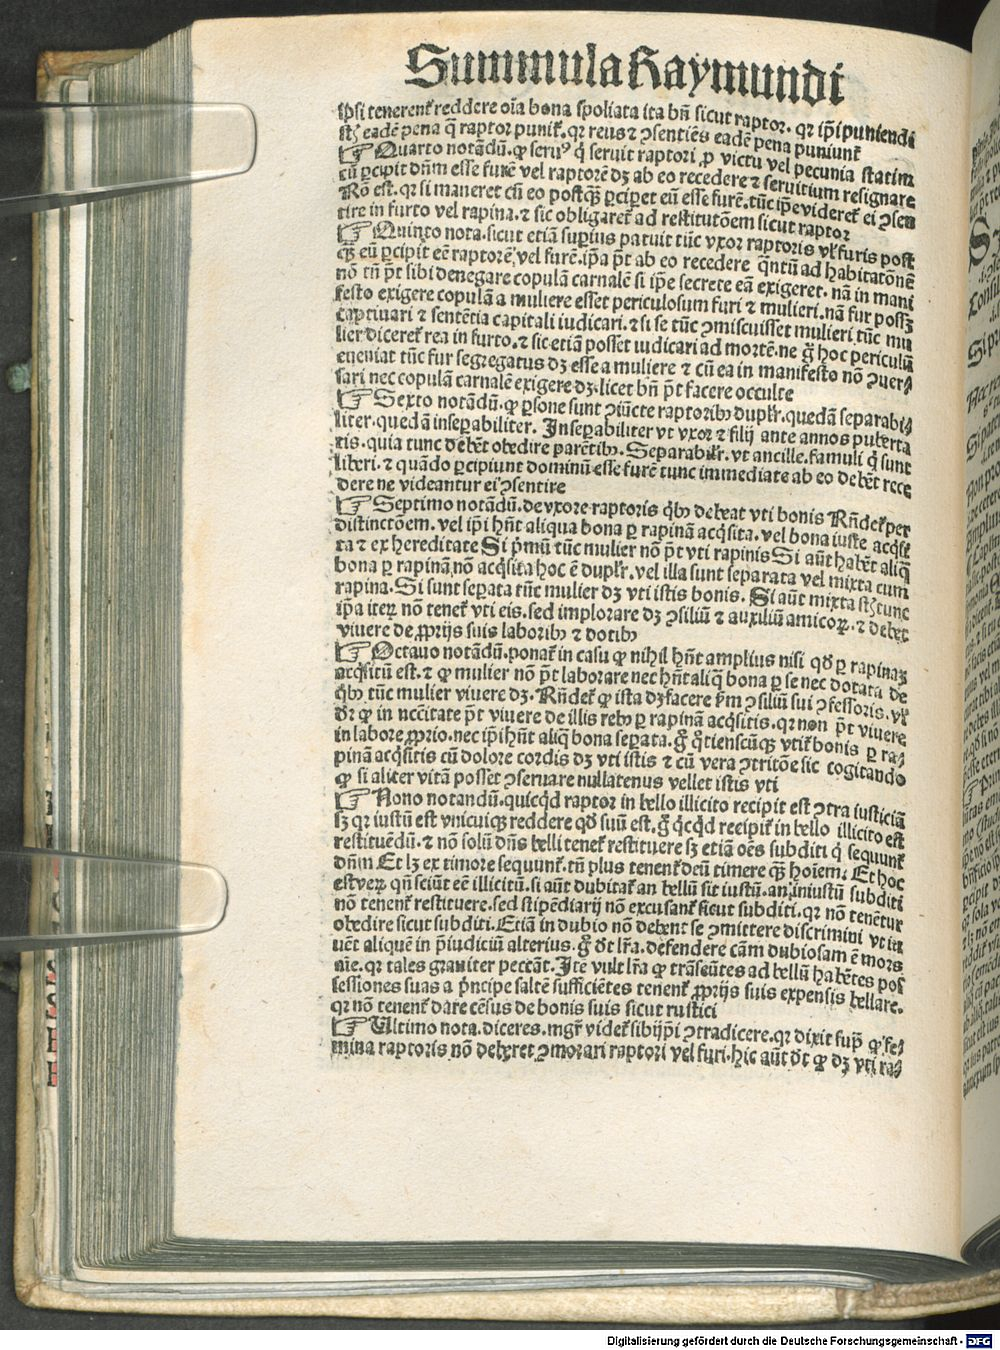 Summula Raymundi
ipsi tenerent᷑ reddere oīa bona spoliata ita bn̄ sicut raptor. qꝛ ip̄i puniendi
st̄ eadē pena q̄ raptor punit᷑. qꝛ reus ⁊ ꝯsentiēs eadē pena puniunt᷑
☞ Quarto notādū. ꝙ seruꝰ q̄ seruit raptori ꝓ victu vel pecunia statim
cū ꝑcipit dn̄m esse furē vel raptorē dꝫ ab eo recedere ⁊ seruitium resignare
Rō est. qꝛ si maneret cū eo postqꝫ̄ ꝑciperet eū esse furē. tūc ip̄e videret᷑ ei ꝯsen
tire in furto vel rapina. ⁊ sic obligaret᷑ ad restitutōem sicut raptor
☞ Quinto nota. sicut etiā suꝑius patuit tūc vxor raptoris vl̓ furis post
qꝫ̄ eū ꝑcipit eē raptorē vel furē. ip̄a pōt ab eo recedere q̄ntū ad habitatōnē
nō tn̄ pōt sibi denegare copulā carnalē si ip̄e secrete eā exigeret. nā in mani
festo exigere copulā a muliere esset periculosum furi ⁊ mulieri. nā fur possꝫ
captiuari ⁊ sentētia capitali iudicari. ⁊ si se tūc ꝯmiscuisset mulieri tūc mu
lier diceret᷑ rea in furto. ⁊ sic etiā posset iudicari ad mortē. ne g̊ hoc periculū
eueniat tūc fur segregatus dꝫ esse a muliere ⁊ cū ea in manifesto nō ꝯuer⸗
sari nec copulā carnalē exigere dꝫ. licet bn̄ pōt facere occulte
☞ Sexto notādū. ꝙ ꝑsone sunt ꝯiūcte raptoribꝫ duplr̄. quedā separabi⸗
liter. quedā inseꝑabiliter. Inseꝑabiliter vt vxor ⁊ filij ante annos puberta
tis. quia tunc debēt obedire parētibꝫ. Separabilr̄. vt ancille. famuli q̄ sunt
liberi. ⁊ quādo ꝑcipiunt dominū esse furē tunc immediate ab eo debēt rece
dere ne videantur ei ꝯsentire
☞ Septimo notādū. de vxore raptoris q̄bꝫ debeat vti bonis Rn̄det᷑ per
distinctōem. vel ip̄i hn̄t aliqua bona ꝑ rapinā acq̄sita. vel bona iuste acq̄si
ta ⁊ ex hereditate Si pͥmū tūc mulier nō pōt vti rapinis Si aūt habēt aliq̄
bona ꝑ rapinā nō acq̄sita hoc ē duplr̄. vel illa sunt separata vel mixta cum
rapina. Si sunt seꝑata tūc mulier dꝫ vti istis bonis. Si aūt mixta st̄ tunc
ip̄a iteꝝ nō tenet᷑ vti eis. sed implorare dꝫ ꝯsiliū ⁊ auxiliū amicoꝝ. ⁊ debet
viuere de ꝓprijs suis laboribꝫ ⁊ dotibꝫ
☞ Octauo notādū. ponat᷑ in casu ꝙ nihil hn̄t amplius nisi qd̄ ꝑ rapinaꝫ
acq̄situ̅ est. ⁊ ꝙ mulier nō pōt laborare nec hn̄t aliq̄ bona ꝑ se nec dotata de
q̄bꝫ tūc mulier viuere dꝫ. Rn̄det᷑ ꝙ ista dꝫ facere ẜm ꝯsiliū sui ꝯfessoris. vl̓
dr̄ ꝙ in nec̄citate pōt viuere de illis rebꝫ ꝑ rapinā acq̄sitis. qꝛ non pōt viuere
in labore ꝓprio. nec ip̄i hn̄t aliq̄ bona seꝑata. g̊ q̄tienscūqꝫ vtit᷑ bonis ꝑ ra⸗
pinā acq̄sitis cū dolore cordis dꝫ vti istis ⁊ cū vera ꝯtritōe sic cogitando
ꝙ si aliter vitā posset ꝯseruare nullatenus vellet istis vti
☞ Nono notandū. quicq̄d raptor in bello illicito recipit est ꝯtra iusticiā
sꝫ qꝛ iustū est vnicuiqꝫ reddere qd̄ suū est. g̊ q̄cq̄d recipit᷑ in bello illicito est
restituēdū. ⁊ nō solū dn̄s belli tenet᷑ restituere sꝫ etiā oēs subditi q̄ sequunt᷑
dn̄m Et lꝫ ex timore sequunt᷑. tn̄ plus tenent᷑ deū timere qꝫ̄ hoīem. Et hoc
est verꝝ qn̄ sciūt eē illicitū. si aūt dubitat᷑ an bellū sit iustū. an iniustū subditi
nō tenent᷑ restituere. sed stipēdiarij nō excusant᷑ sicut subditi. qꝛ nō tenētur
obedire sicut subditi. Etiā in dubio nō debent se ꝯmittere discrimini vt iu
uēt aliquē in p̄iudiciū alterius. g̊ dt̄ lr̄a. defendere cām dubiosam ē mors
aīe. qꝛ tales grauiter peccāt. Itē vult lr̄a ꝙ trāseūtes ad bellū habētes pos
sessiones suas a pͥncipe saltē sufficiētes tenent᷑ ꝓprijs suis expensis bellare.
qꝛ nō tenent᷑ dare cēsus de bonis suis sicut rustici
☞ Ultimo nota. diceres. mgr̄ videt᷑ sibijp̄i ꝯtradicere. qꝛ dixit suꝑ ꝙ fe⸗
mina raptoris nō deberet ꝯmorari raptori vel furi. hic aūt dt̄ ꝙ dꝫ vti ra⸗
Digitalisierung gefördert durch die Deutsche Forschungsgemeinschaft - DFG